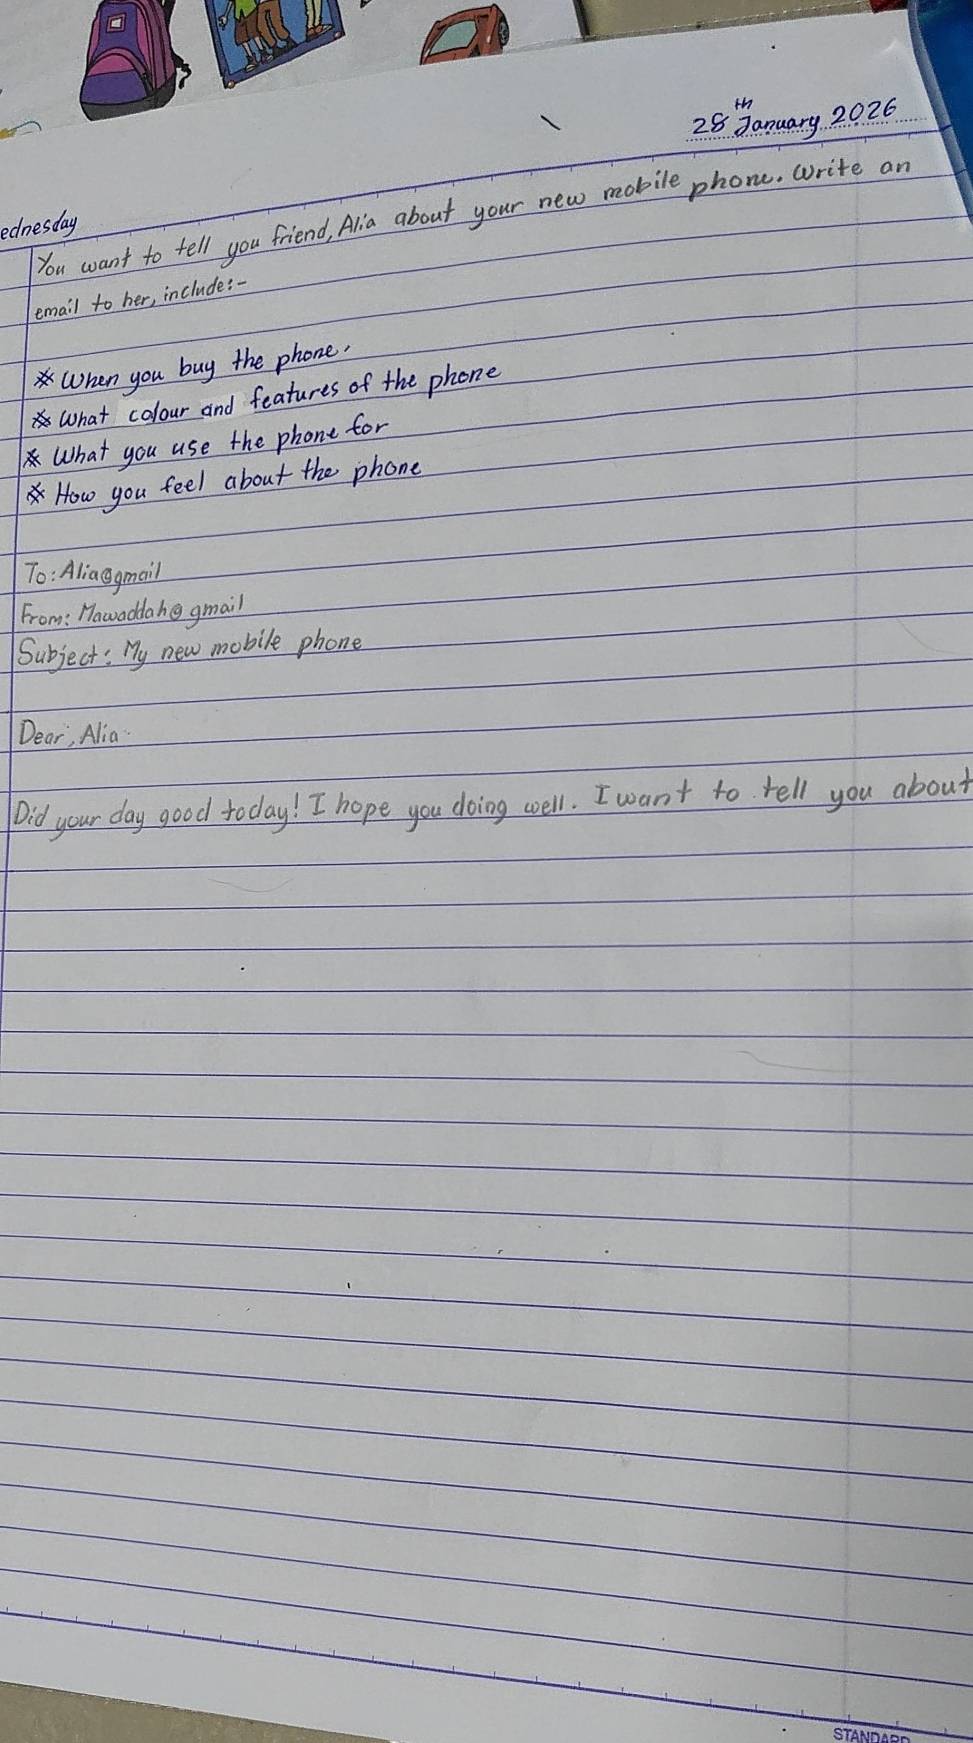 28th January 2026
ednesday
You want to tell you friend, Alia about your new mobile phone. Write an
email to her, include:-
* When you buy the phone.
* What colour and features of the phone
* What you use the phone for
* How you feel about the phone
To: Alia@gmail
From: Mawaddah@gmail
Subject: My new mobile phone
Dear, Alia
Did your day good today! I hope you doing well. I want to tell you about
STANDARD